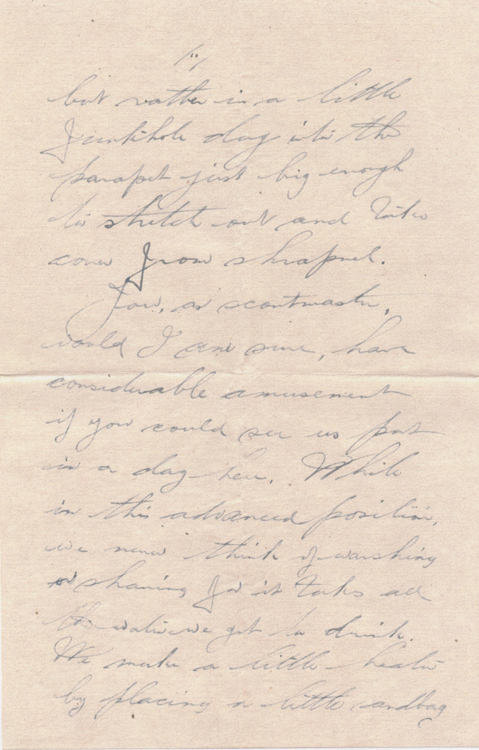 but rather in a little
funkhole dug into the
parapet just big enough
to stretch out and take
cover from shrapnel.
You, as scoutmaster,
would I am sure, have
considerable amusement
if you could see us put
in a day here. While
in this advanced position,
we never think of washing
or shaving for it takes all
the water we get to drink.
We make a little heater
by placing a little sandbag